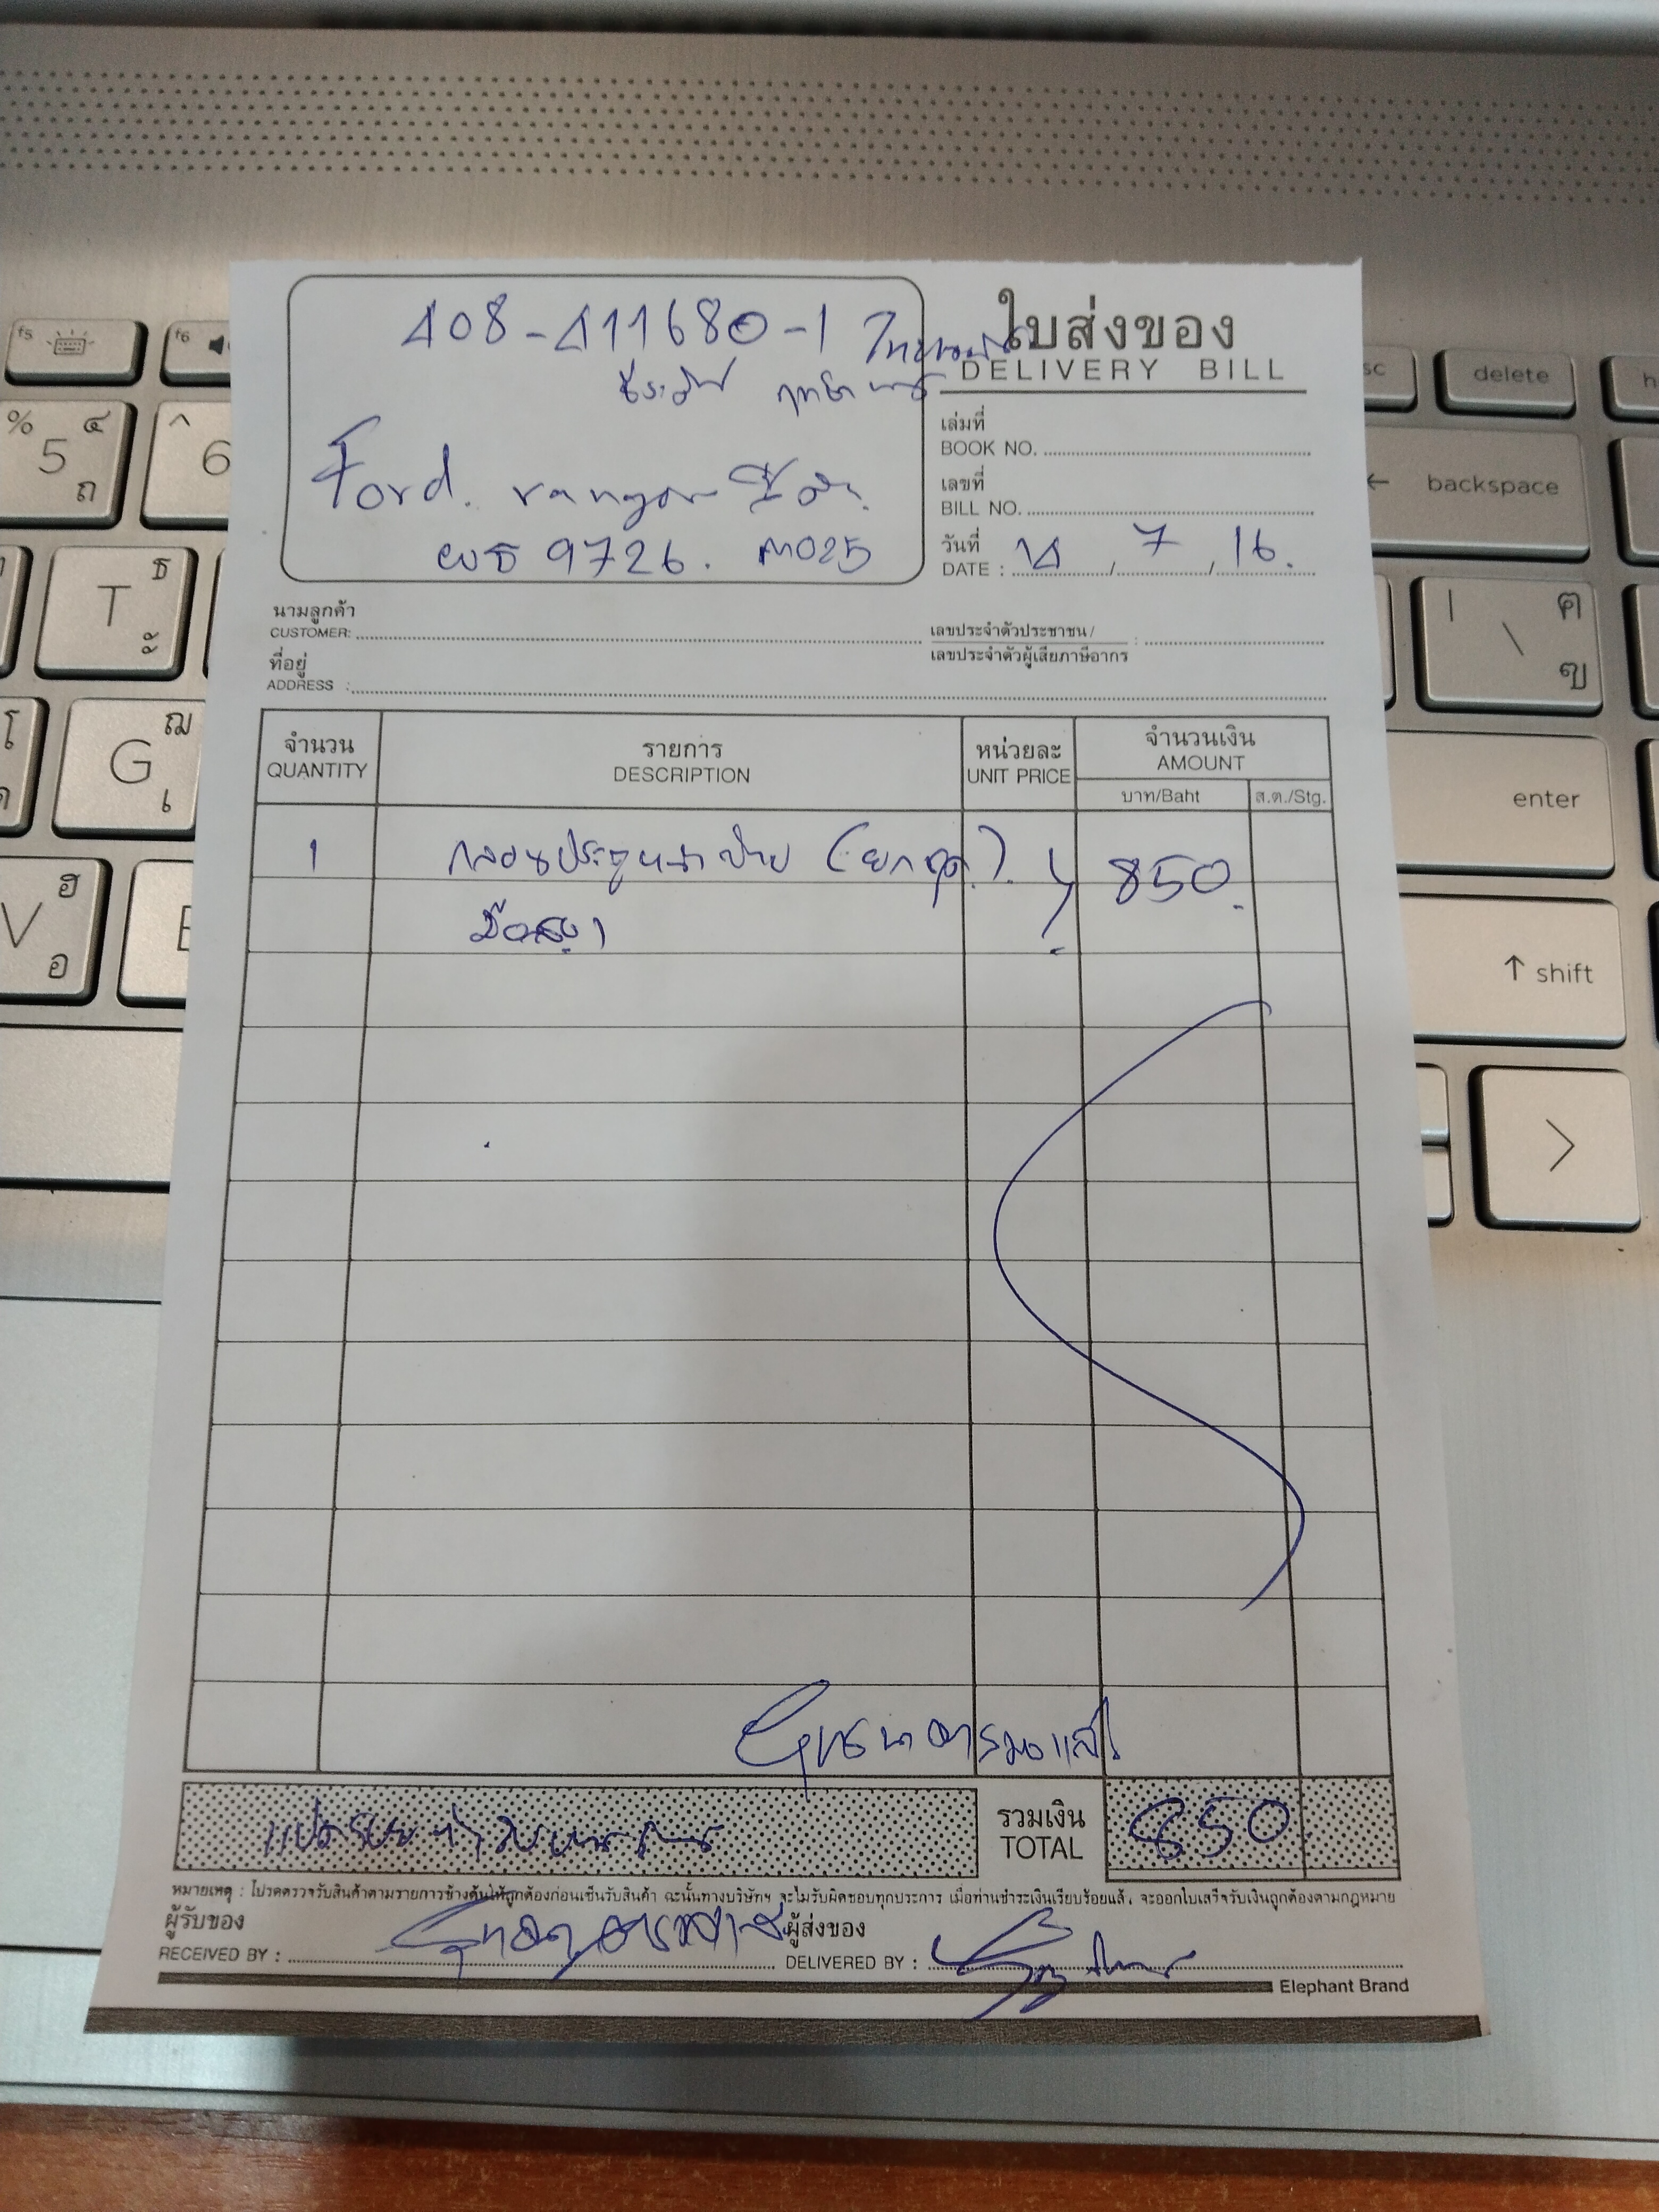 408-411680-1 ไทยพาณิชย์
Ford. ranger
9726. M025
ใบส่งของ
DELIVERY BILL
เล่มที่
BOOK NO.
เลขที่
BILL NO.
วันที่
DATE : 14 / 7 / 16.
นามลูกค้า
CUSTOMER:
เลขประจำตัวประชาชน /
เลขประจำตัวผู้เสียภาษีอากร :
ที่อยู่
ADDRESS :
จำนวน รายการ หน่วยละ จำนวนเงิน
QUANTITY DESCRIPTION UNIT PRICE AMOUNT
บาท/Baht ส.ต./Stg.
1 กลอนประตูหน้าซ้าย (ยกชุด). 850.
มือสอง
รวมเงิน
TOTAL 850
แปดร้อยห้าสิบบาทถ้วน
หมายเหตุ : โปรดตรวจรับสินค้าตามรายการข้างต้นให้ถูกต้องก่อนเซ็นรับสินค้า ฉะนั้นทางบริษัทฯ จะไม่รับผิดชอบทุกประการ เมื่อท่านชำระเงินเรียบร้อยแล้ว, จะออกใบเสร็จรับเงินถูกต้องตามกฎหมาย
ผู้รับของ
RECEIVED BY :
ผู้ส่งของ
DELIVERED BY :
Elephant Brand
f5
f6
% ๔
5 ถ
^
6
T ธ ะ
G ฌ เ
V ฮ อ
delete
backspace
| ฅ
\ ฃ
enter
shift